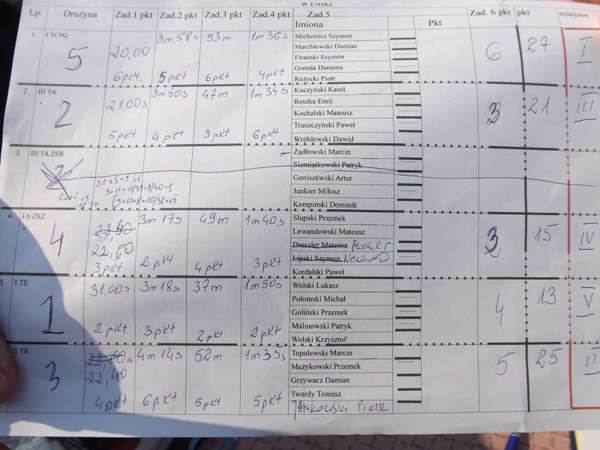 WYNIKI
Lp. Drużyna Zad.1 pkt Zad.2 pkt Zad.3 pkt Zad.4 pkt Zad.5 Imiona Pkt Zad. 6 pkt pkt miejsce
1 I TCPG 5 20,00 3m 58s 53m 1m 36s Michowicz Szymon 6 27 I
Marchlewski Damian
Firański Szymon
Grenda Damona
6pkt 5pkt 6pkt 4pkt Różycki Piotr
2 III TA 2 21,00s 3m 50s 47m 1m 34s Kuczyński Karol 3 21 III
Reszka Emil
Kochalski Mateusz
Truszczyński Paweł
5pkt 4pkt 3pkt 6pkt Wróblewski Dawid
3 III TA ZSR Żądłowski Marcin
Siemiątkowski Patryk
Goniszewski Artur
Junkier Miłosz
Kempiński Dominik
4 I b ZSZ 4 22,60 3m 17s 49m 1m 40s Słupski Przemek 3 15 IV
Lewandowski Mateusz
Dreszler Mateusz
Lipski Szymon
3pkt 2pkt 4pkt 3pkt Kordalski Paweł
5 I TE 1 31,00s 3m 18s 37m 1m 50s Wolski Łukasz 4 13 V
Połomski Michał
Goliński Przemek
Malinowski Patryk
2pkt 3pkt 2pkt 2pkt Wolski Krzysztof
TA 3 22,40 4m 14s 52m 1m 35s Topolewski Marcin 5 25 II
Mężykowski Przemek
Grzywacz Damian
Twardy Tomasz
4pkt 6pkt 5pkt 5pkt Jankowska Piotr